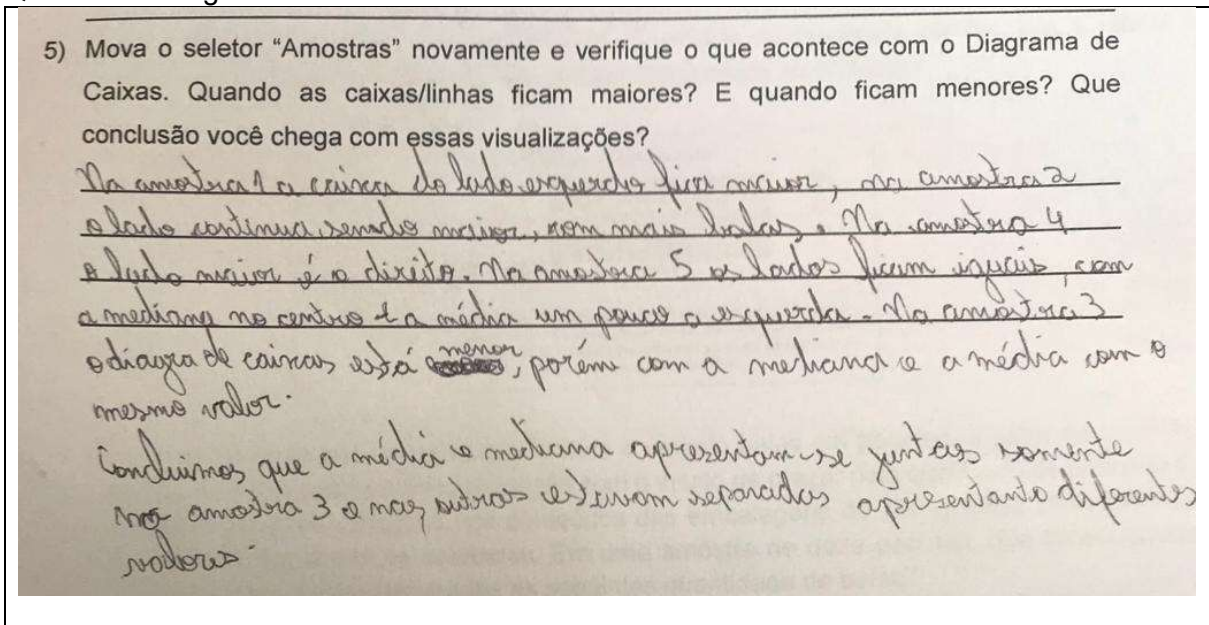 5) Mova o seletor “Amostras” novamente e verifique o que acontece com o Diagrama de
Caixas. Quando as caixas/linhas ficam maiores? E quando ficam menores? Que
conclusão você chega com essas visualizações?
Na amostra 1 a caixa do lado esquerdo fica maior, na amostra 2
o lado continua sendo maior, com mais balas. Na amostra 4
o lado maior é o direito. Na amostra 5 os lados ficam iguais, com
a mediana no centro e a média um pouco a esquerda. Na amostra 3
o diagra de caixas está menor, porém com a mediana e a média com o
mesmo valor.
Concluimos que a média e mediana apresentam-se juntas somente
na amostra 3 e nas outras estavam separadas apresentanto diferentes
valores.